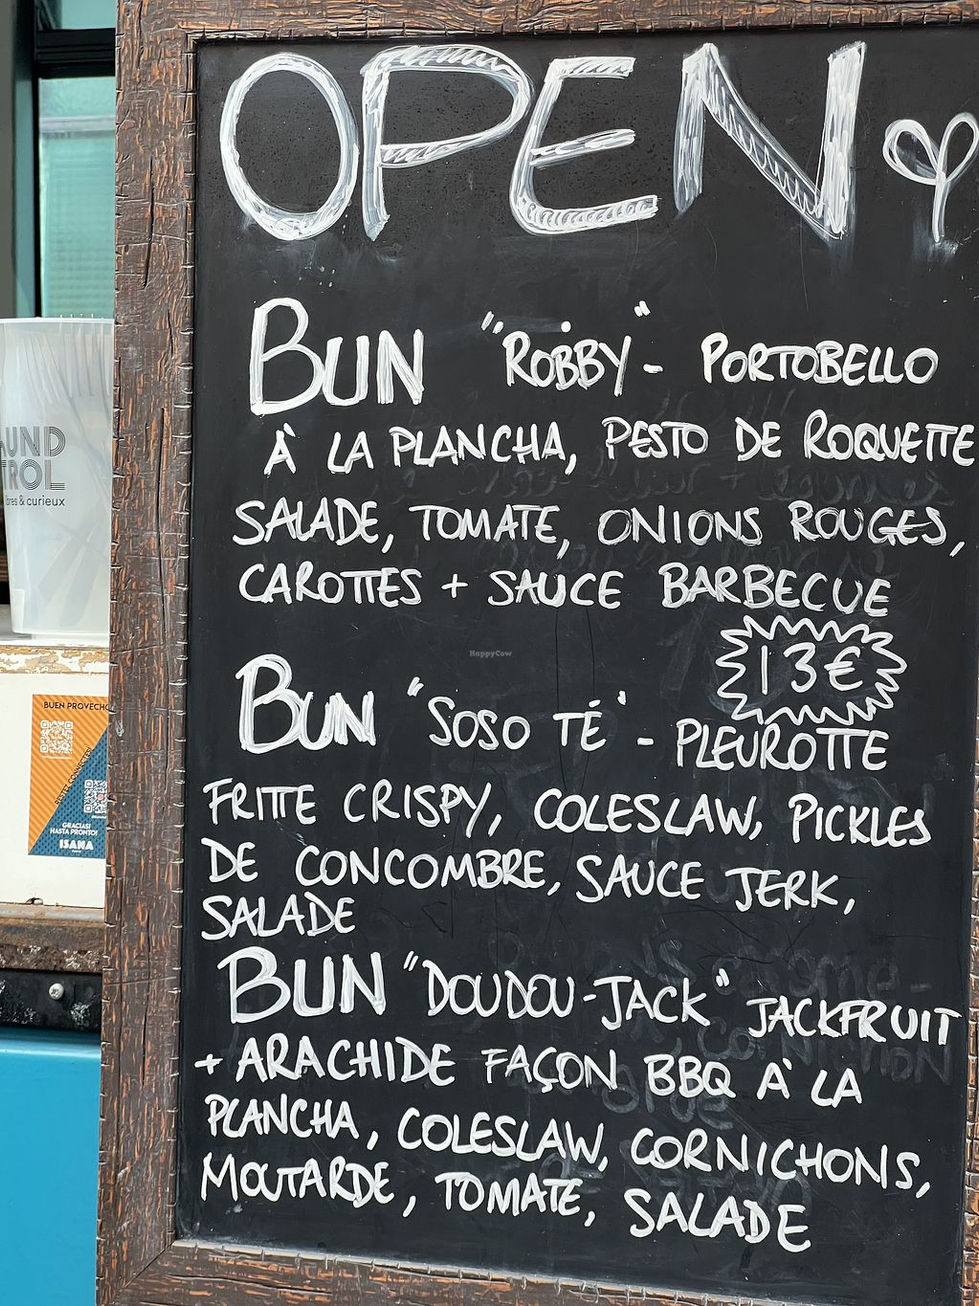 OPEN
BUN "ROBBY" - PORTOBELLO
À LA PLANCHA, PESTO DE ROQUETTE
SALADE, TOMATE, ONIONS ROUGES,
CAROTTES + SAUCE BARBECUE
13€
BUN "SOSO TÉ" - PLEUROTTE
FRITTE CRISPY, COLESLAW, PICKLES
DE CONCOMBRE, SAUCE JERK,
SALADE
BUN "DOUDOU-JACK" JACKFRUIT
+ ARACHIDE FAÇON BBQ À LA
PLANCHA, COLESLAW, CORNICHONS,
MOUTARDE, TOMATE, SALADE
HappyCow
UND
TROL
& curieux
BUEN PROVECHO
GRACIAS!
HASTA PRONTO!
ISANA